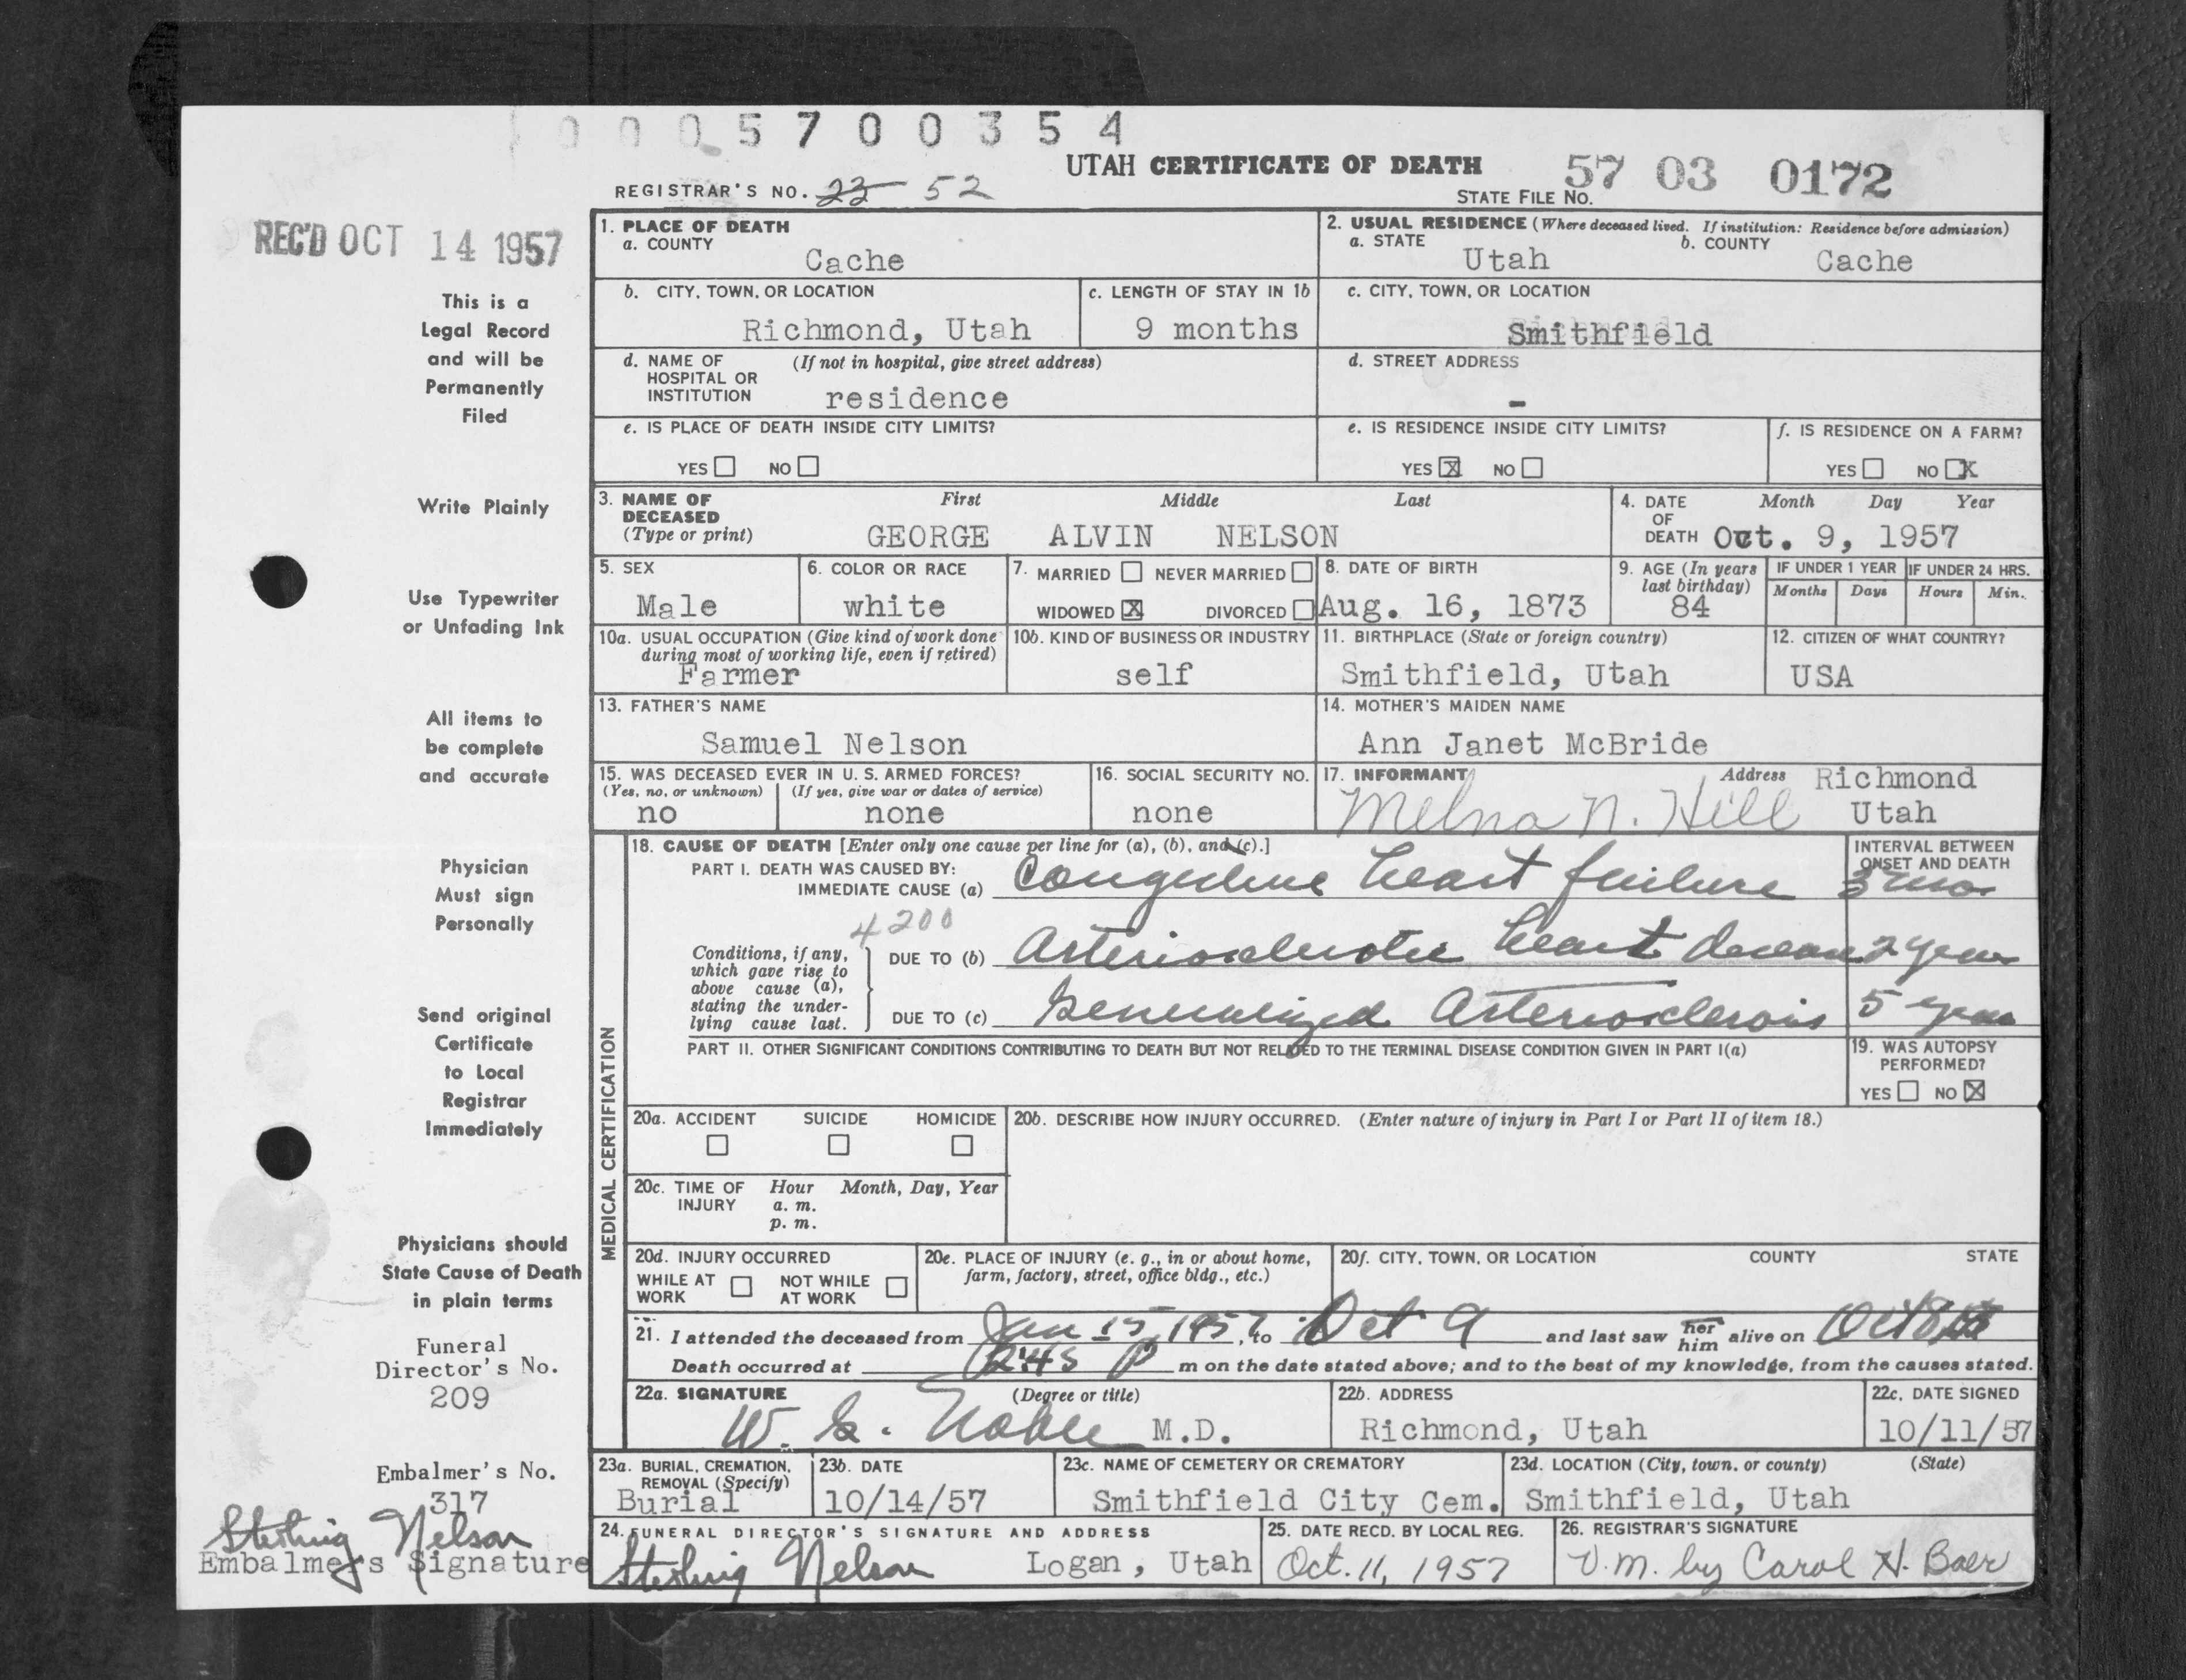 0005700354
UTAH CERTIFICATE OF DEATH
57 03 0172
REGISTRAR'S NO. 23 52
STATE FILE NO.
REC'D OCT 14 1957
This is a
Legal Record
and will be
Permanently
Filed
Write Plainly
Use Typewriter
or Unfading Ink
All items to
be complete
and accurate
Physician
Must sign
Personally
Send original
Certificate
to Local
Registrar
Immediately
Physicians should
State Cause of Death
in plain terms
Funeral
Director's No.
209
Embalmer's No.
317
Sterling Nelson
Embalmers Signature
1. PLACE OF DEATH
a. COUNTY
Cache
2. USUAL RESIDENCE (Where deceased lived. If institution: Residence before admission)
a. STATE
b. COUNTY
Utah
Cache
b. CITY, TOWN, OR LOCATION
c. LENGTH OF STAY IN 1b
c. CITY, TOWN, OR LOCATION
Richmond, Utah
9 months
Smithfield
d. NAME OF HOSPITAL OR INSTITUTION
(If not in hospital, give street address)
residence
d. STREET ADDRESS
-
e. IS PLACE OF DEATH INSIDE CITY LIMITS?
YES NO
e. IS RESIDENCE INSIDE CITY LIMITS?
YES X NO
f. IS RESIDENCE ON A FARM?
YES NO X
3. NAME OF DECEASED
(Type or print)
First Middle Last
GEORGE ALVIN NELSON
4. DATE OF DEATH
Month Day Year
Oct. 9, 1957
5. SEX
Male
6. COLOR OR RACE
white
7. MARRIED NEVER MARRIED
WIDOWED X DIVORCED
8. DATE OF BIRTH
Aug. 16, 1873
9. AGE (In years last birthday)
84
IF UNDER 1 YEAR
Months Days
IF UNDER 24 HRS.
Hours Min.
10a. USUAL OCCUPATION (Give kind of work done during most of working life, even if retired)
Farmer
10b. KIND OF BUSINESS OR INDUSTRY
self
11. BIRTHPLACE (State or foreign country)
Smithfield, Utah
12. CITIZEN OF WHAT COUNTRY?
USA
13. FATHER'S NAME
Samuel Nelson
14. MOTHER'S MAIDEN NAME
Ann Janet McBride
15. WAS DECEASED EVER IN U. S. ARMED FORCES?
(Yes, no, or unknown) (If yes, give war or dates of service)
no none
16. SOCIAL SECURITY NO.
none
17. INFORMANT
Melna N. Hill
Address Richmond
Utah
MEDICAL CERTIFICATION
18. CAUSE OF DEATH [Enter only one cause per line for (a), (b), and (c).]
PART I. DEATH WAS CAUSED BY:
IMMEDIATE CAUSE (a) Congestive heart failure
INTERVAL BETWEEN ONSET AND DEATH
3 mo
4200
Conditions, if any, which gave rise to above cause (a), stating the underlying cause last.
DUE TO (b) Arteriosclerotic heart disease 2 years
DUE TO (c) Generalized Arteriosclerosis 5 years
PART II. OTHER SIGNIFICANT CONDITIONS CONTRIBUTING TO DEATH BUT NOT RELATED TO THE TERMINAL DISEASE CONDITION GIVEN IN PART I(a)
19. WAS AUTOPSY PERFORMED?
YES NO X
20a. ACCIDENT SUICIDE HOMICIDE
20b. DESCRIBE HOW INJURY OCCURRED. (Enter nature of injury in Part I or Part II of item 18.)
20c. TIME OF INJURY
Hour Month, Day, Year
a. m.
p. m.
20d. INJURY OCCURRED
WHILE AT WORK NOT WHILE AT WORK
20e. PLACE OF INJURY (e. g., in or about home, farm, factory, street, office bldg., etc.)
20f. CITY, TOWN, OR LOCATION COUNTY STATE
21. I attended the deceased from Jan 15, 1957, to Oct 9 and last saw her him alive on Oct 8
Death occurred at 245 P m on the date stated above; and to the best of my knowledge, from the causes stated.
22a. SIGNATURE (Degree or title)
W. G. Noble M.D.
22b. ADDRESS
Richmond, Utah
22c. DATE SIGNED
10/11/57
23a. BURIAL, CREMATION, REMOVAL (Specify)
Burial
23b. DATE
10/14/57
23c. NAME OF CEMETERY OR CREMATORY
Smithfield City Cem.
23d. LOCATION (City, town, or county) (State)
Smithfield, Utah
24. FUNERAL DIRECTOR'S SIGNATURE AND ADDRESS
Sterling Nelson Logan, Utah
25. DATE RECD. BY LOCAL REG.
Oct. 11, 1957
26. REGISTRAR'S SIGNATURE
V.M. by Carol H. Baer